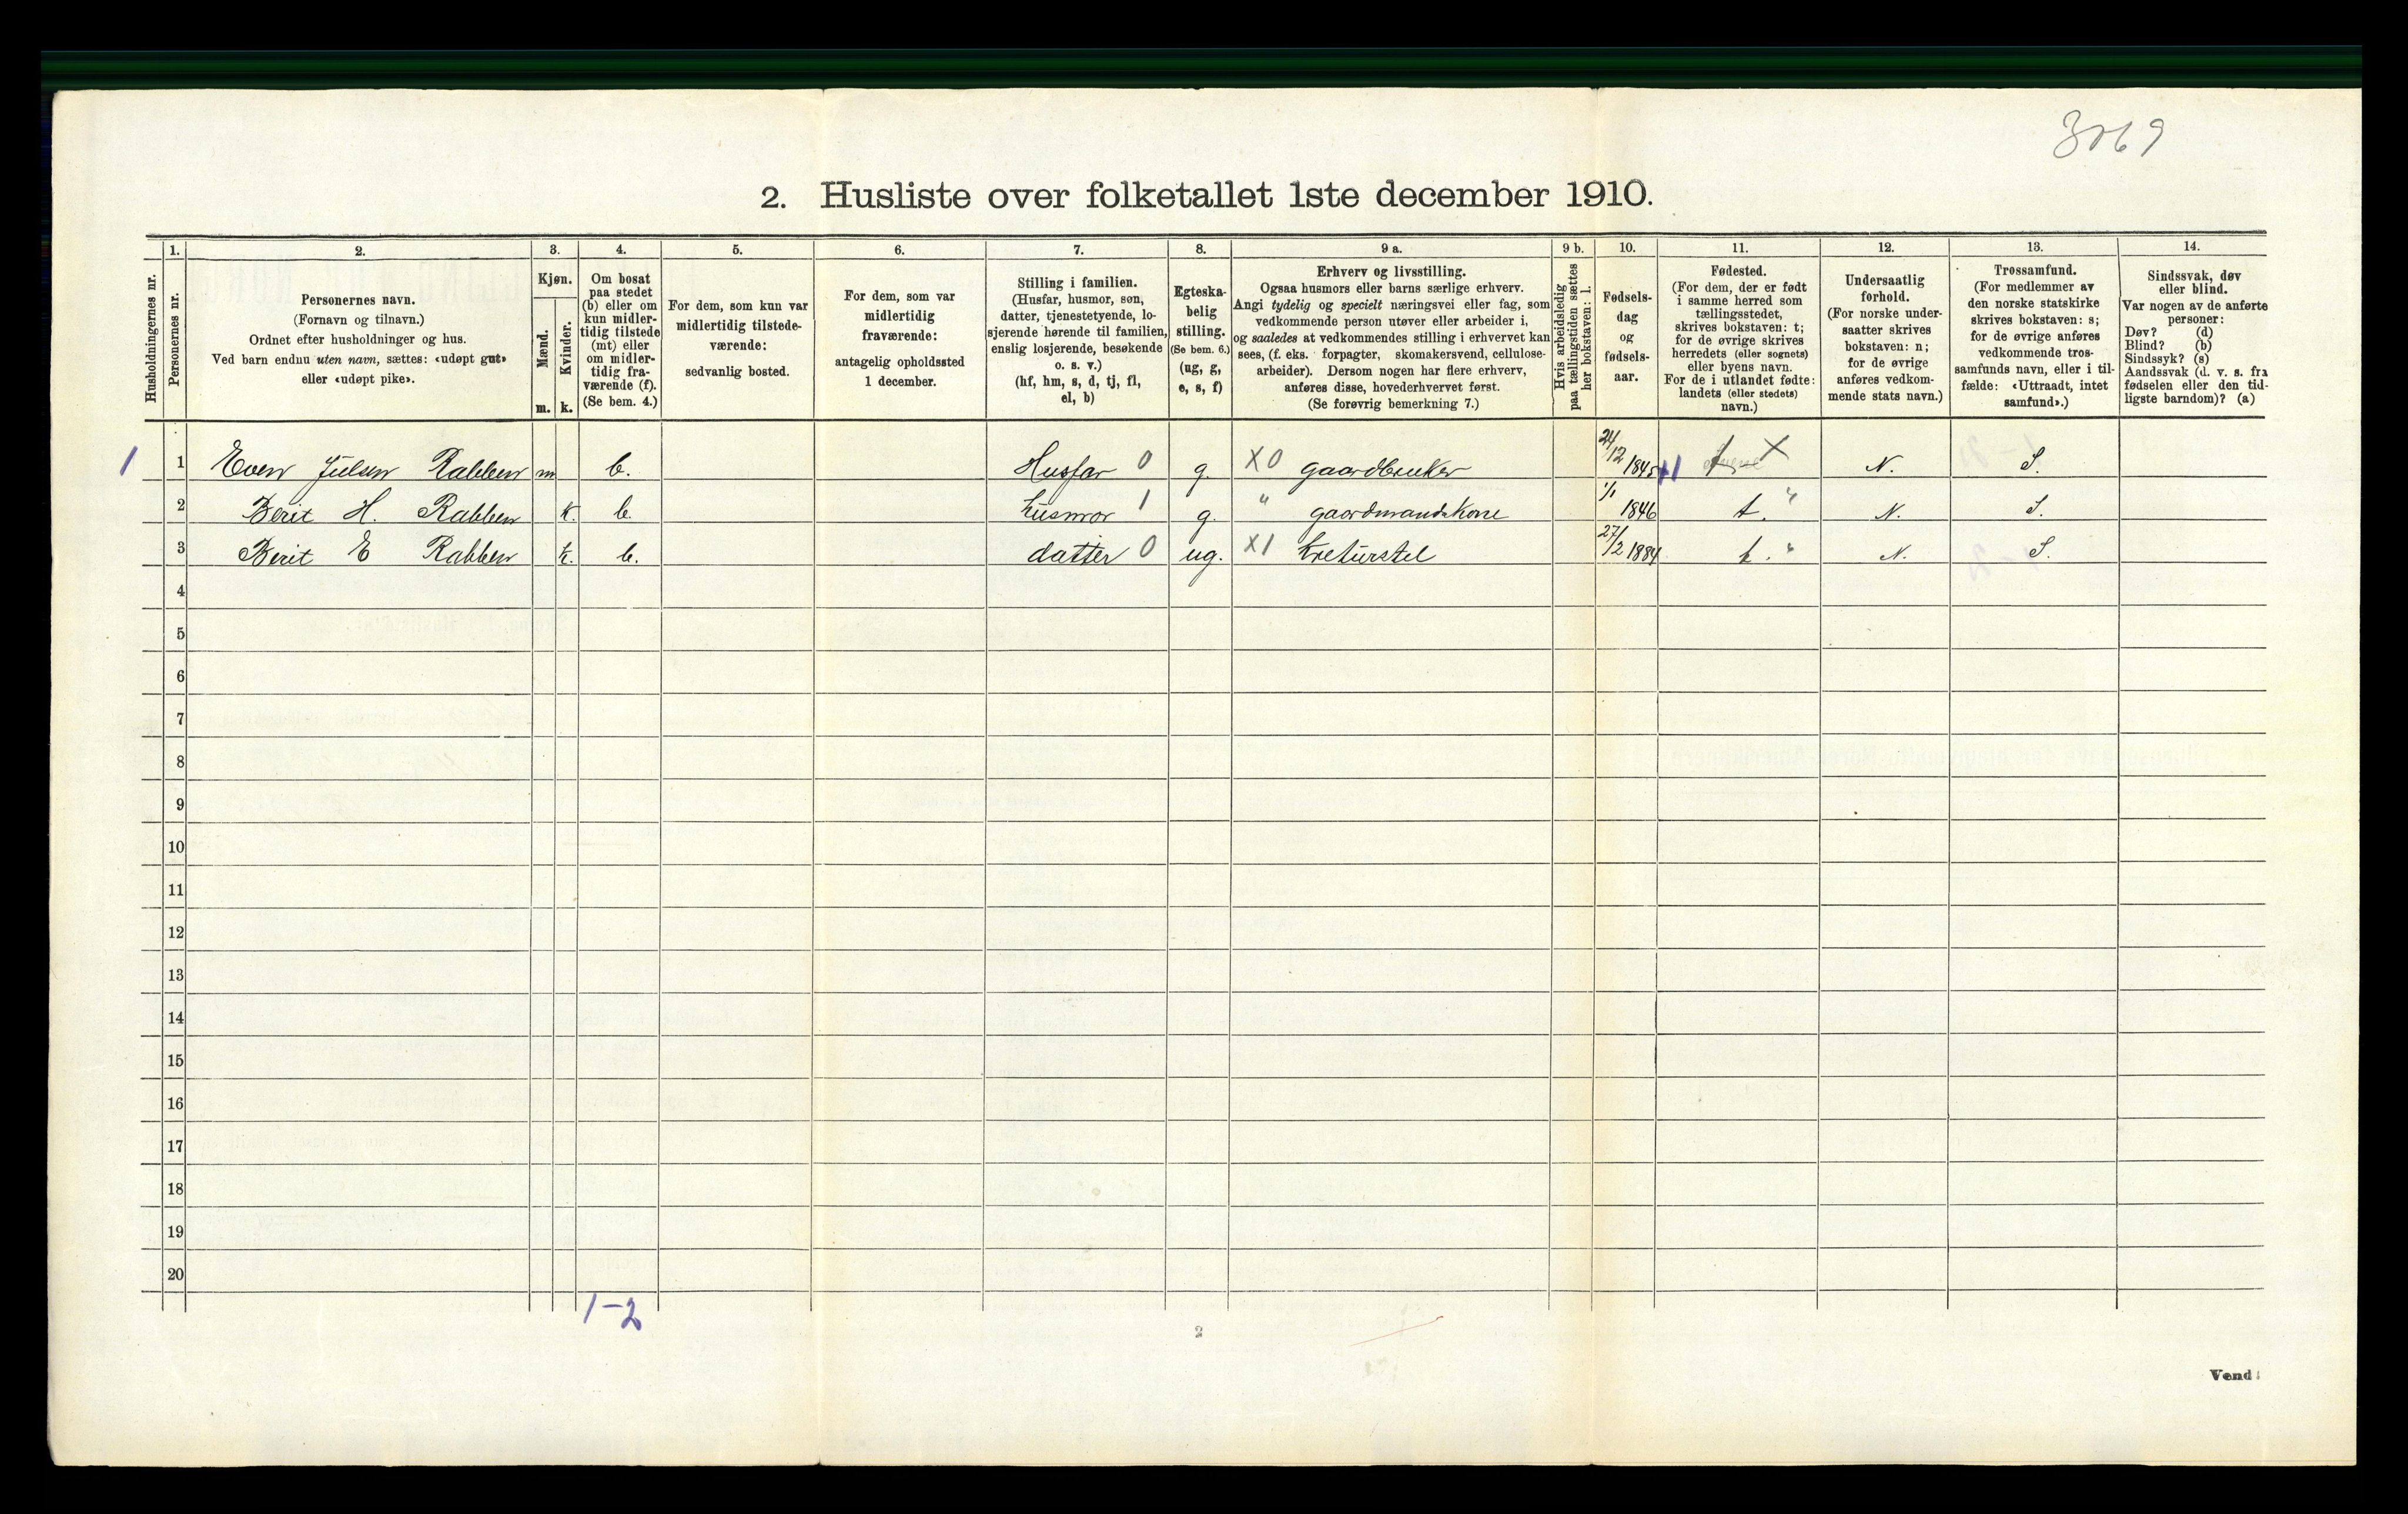 3069
2. Husliste over folketallet 1ste december 1910.
Husholdningernes nr.
1.
Personernes nr.
2.
Personernes navn.
(Fornavn og tilnavn.)
Ordnet efter husholdninger og hus.
Ved barn endnu uten navn, sættes: «udøpt gut»
eller «udøpt pike».
3.
Kjøn.
Mænd.
m.
Kvinder.
k.
4.
Om bosat
paa stedet
(b) eller om
kun midler-
tidig tilstede
(mt) eller
om midler-
tidig fra-
værende (f).
(Se bem. 4.)
5.
For dem, som kun var
midlertidig tilstede-
værende:
sedvanlig bosted.
6.
For dem, som var
midlertidig
fraværende:
antagelig opholdssted
1 december.
7.
Stilling i familien.
(Husfar, husmor, søn,
datter, tjenestetyende, lo-
sjerende hørende til familien,
enslig losjerende, besøkende
o. s. v.)
(hf, hm, s, d, tj, fl,
el, b)
8.
Egteska-
belig
stilling.
(Se bem. 6.)
(ug, g,
e, s, f)
9 a.
Erhverv og livsstilling.
Ogsaa husmors eller barns særlige erhverv.
Angi tydelig og specielt næringsvei eller fag, som
vedkommende person utøver eller arbeider i,
og saaledes at vedkommendes stilling i erhvervet kan
sees, (f. eks. forpagter, skomakersvend, cellulose-
arbeider). Dersom nogen har flere erhverv,
anføres disse, hovederhvervet først.
(Se forøvrig bemerkning 7.)
9 b.
Hvis arbeidsledig
paa tællingstiden sættes
her bokstaven: l.
10.
Fødsels-
dag
og
fødsels-
aar.
11.
Fødested.
(For dem, der er født
i samme herred som
tællingsstedet,
skrives bokstaven: t;
for de øvrige skrives
herredets (eller sognets)
eller byens navn.
For de i utlandet fødte:
landets (eller stedets)
navn.)
12.
Undersaatlig
forhold.
(For norske under-
saatter skrives
bokstaven: n;
for de øvrige
anføres vedkom-
mende stats navn.)
13.
Trossamfund.
(For medlemmer av
den norske statskirke
skrives bokstaven: s;
for de øvrige anføres
vedkommende tros-
samfunds navn, eller i til-
fælde: «Uttraadt, intet
samfund».)
14.
Sindssvak, døv
eller blind.
Var nogen av de anførte
personer:
Døv? (d)
Blind? (b)
Sindssyk? (s)
Aandssvak (d. v. s. fra
fødselen eller den tid-
ligste barndom)? (a)
1 1 Even Julsen Rabben m b. Husfar 0 g. X0 gaardbruker 24/12 1845 t X N. S.
2 Berit H. Rabben k. b. husmor 1 g. " gaardmandskone 1/1 1846 t. " N. S.
3 Berit E Rabben k. b. datter 0 ug. X1 kreturstel 27/2 1884 t. " N. S.
4
5
6
7
8
9
10
11
12
13
14
15
16
17
18
19
20
1-2
2
Vend!